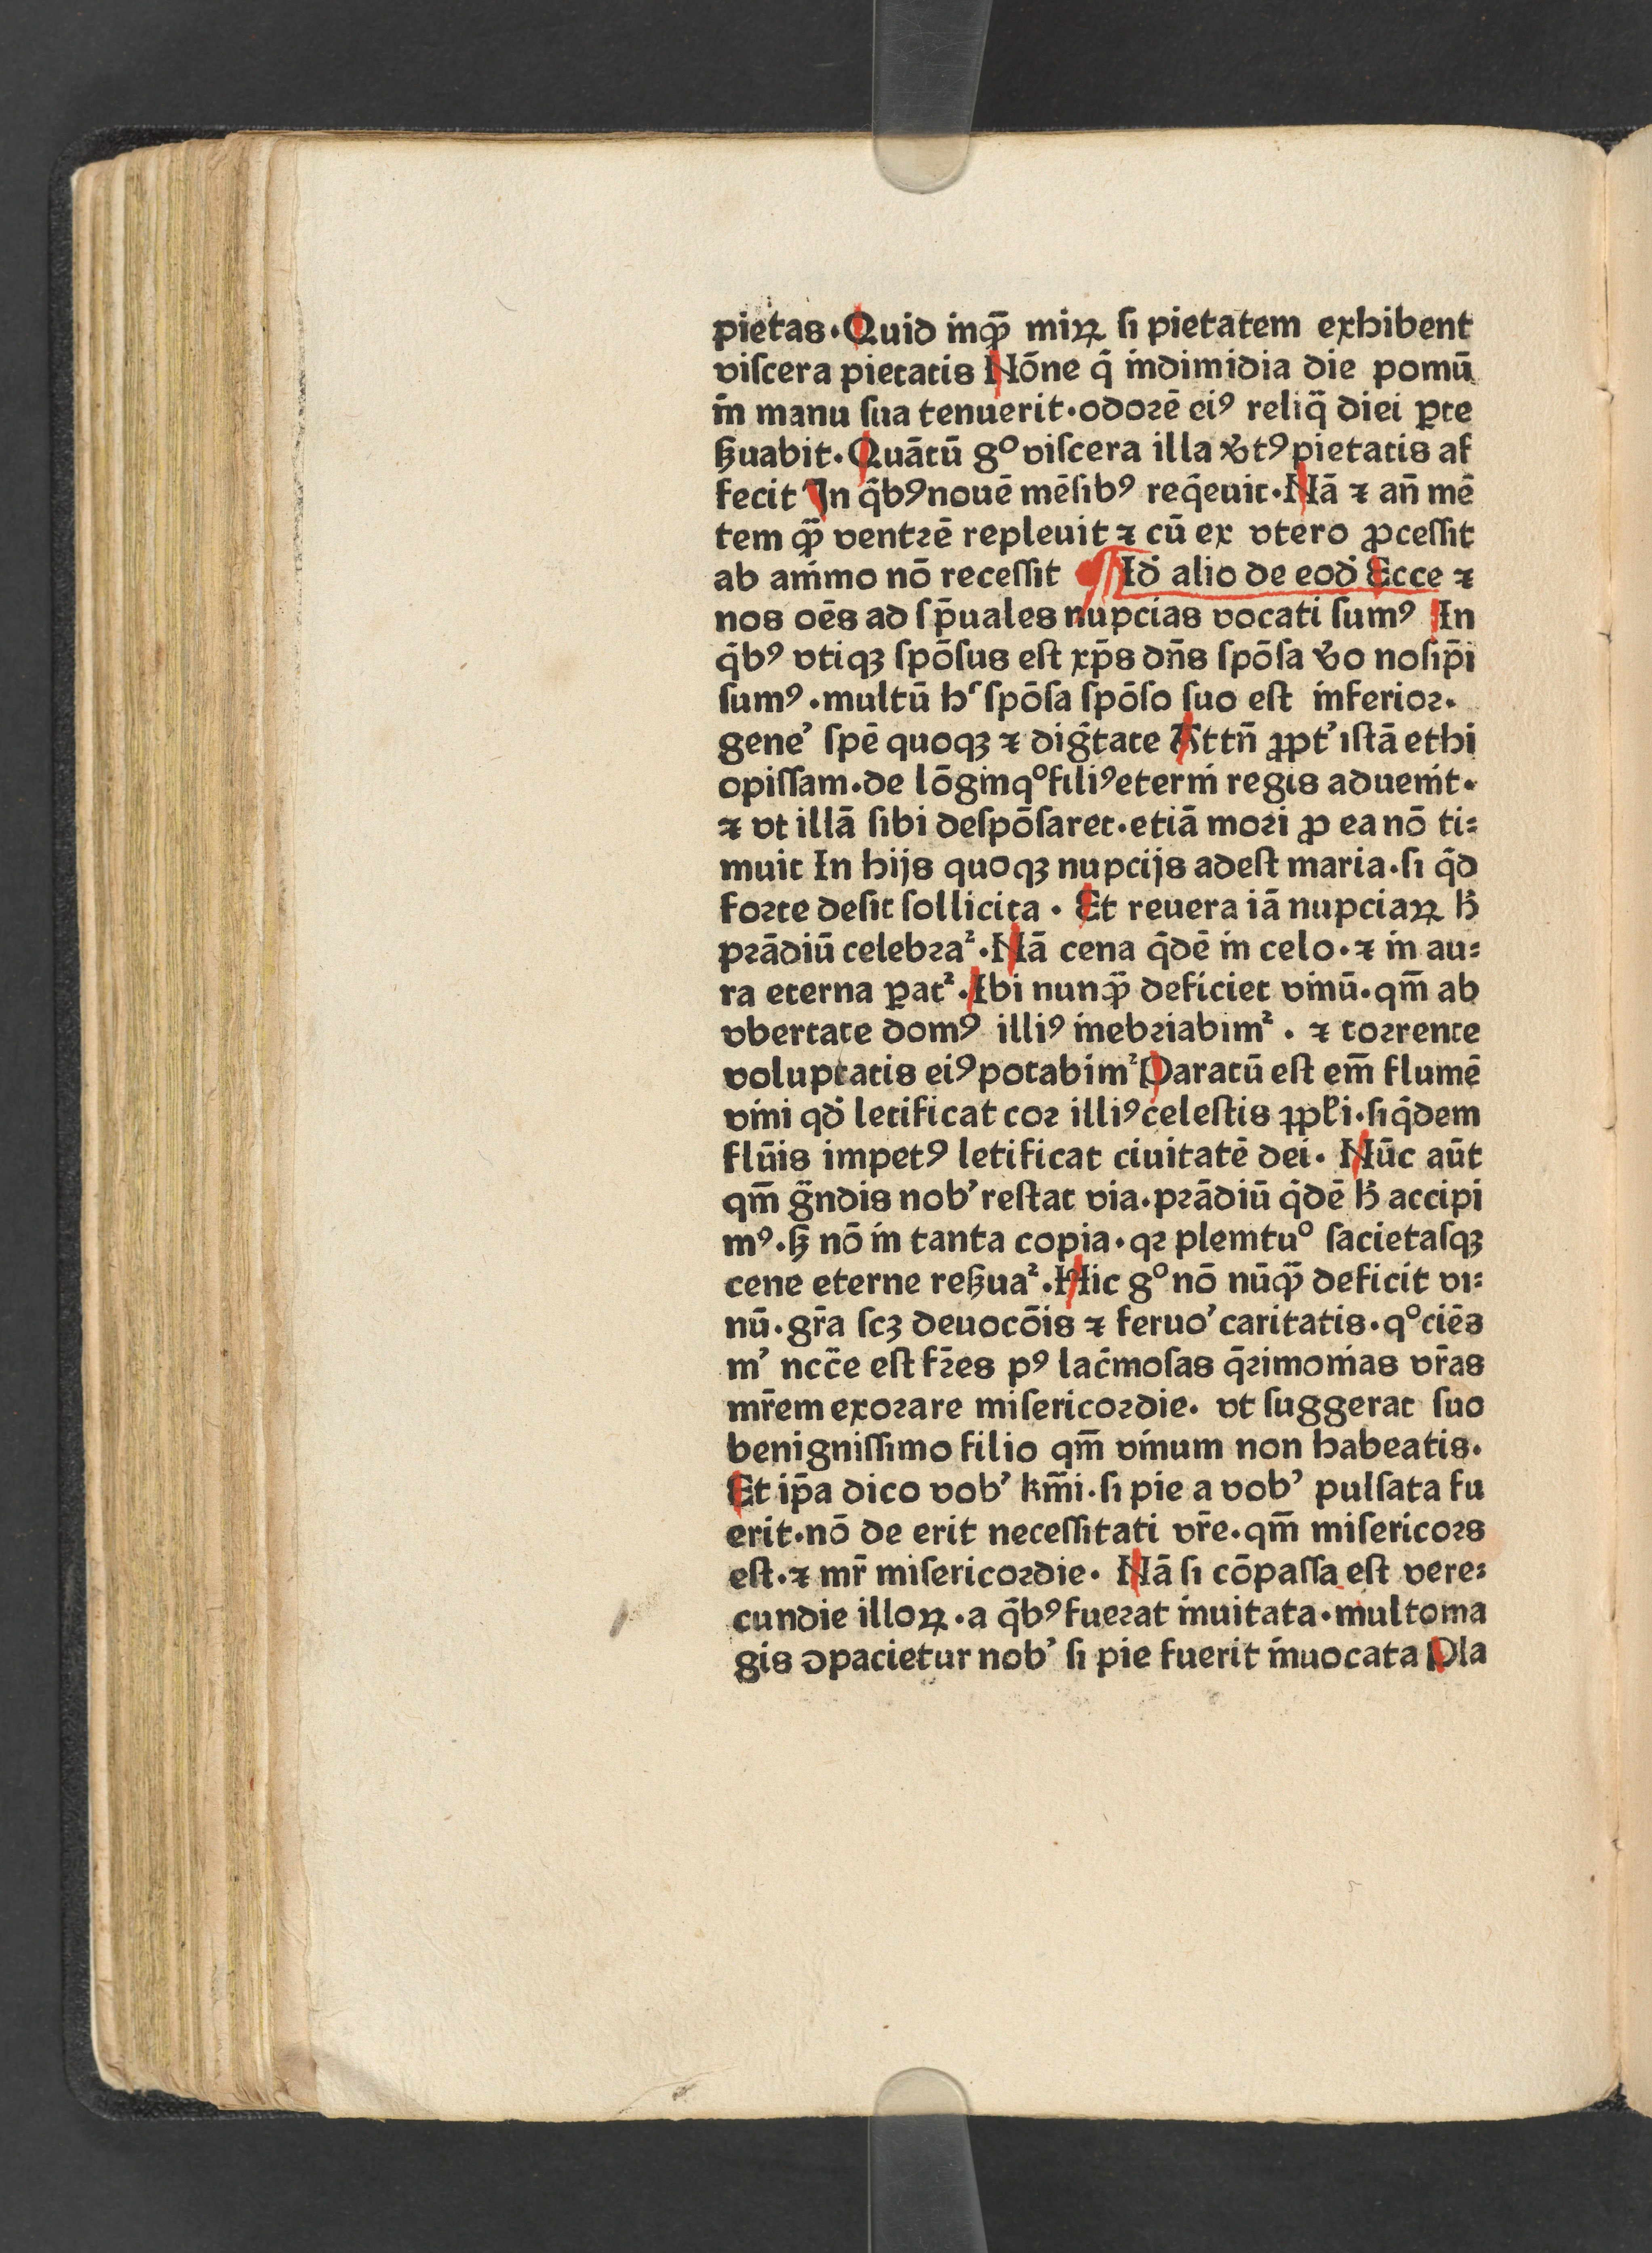 pietas. Quid inqͣ̄ miꝝ ſi pietatem exhibent
viſcera pietatis Nōne q̄ indimidia die pomū
in manu ſua tenuerit. odorē eiꝰ reliq̄ diei ꝑte
ẜuabit. Quātū gͦ viſcera illa ꝟtꝰ pietatis af
fecit In q̄bꝰ nouē mēſibꝰ req̄euit. Nā ⁊ an̄ mē
tem qͣ̄ ventrē repleuit ⁊ cū ex vtero ꝓceſſit
ab animo nō receſſit ¶ Id̄ alio de eod̄ Ecce ⁊
nos oēs ad ſp̄uales nupcias vocati ſumꝰ In
q̄bꝰ vtiqꝫ ſpōſus eſt xp̄s dn̄s ſpōſa ꝟo noſip̄i
ſumꝰ. multū hᷤ ſpōſa ſpōſo ſuo eſt inferior.
gene’ ſpē quoqꝫ ⁊ diḡtate Attn̄ ꝓpt’ iſtā ethi
opiſſam. de lōginqͦ filiꝰ eterni regis aduenit.
⁊ vt illā ſibi deſpōſaret. etiā mori ꝓ ea nō ti⸗
muit In hijs quoqꝫ nupcijs adeſt maria. ſi q̄d
forte deſit ſollicita. Et reuera iā nupciaꝝ h̄
prādiū celebraᷣ. Nā cena q̄dē in celo. ⁊ in au⸗
ra eterna ꝑatᷣ. Ibi nunqͣ̄ deficiet vinū. qm̄ ab
vbertate domꝰ illiꝰ inebriabimᷣ. ⁊ torrente
voluptatis eiꝰ potabimᷣ Paratū eſt em̄ flumē
vini qd̄ letificat cor illiꝰ celeſtis ꝓpl̄i. ſiq̄dem
flūis impetꝰ letificat ciuitatē dei. Nūc aūt
qm̄ g̈ndis nob’ reſtat via. prādiū q̄dē h̄ accipi
mꝰ. ẜ nō in tanta copia. qꝛ plenituͦ ſacietaſqꝫ
cene eterne reẜuaᷣ. Hic gͦ nō nūqͣ̄ deficit vi⸗
nū. gr̄a ſcꝫ deuocōis ⁊ feruo’ caritatis. qͦciēs
m’ ncc̄e eſt fr̄es pꝰ lac̄moſas q̄rimonias vr̄as
mr̄em exorare miſericordie. vt ſuggerat ſuo
benigniſſimo filio qm̄ vinum non habeatis.
Et ip̄a dico vob’ km̄i. ſi pie a vob’ pulſata fu
erit. nō de erit neceſſitati vr̄e. qm̄ miſericors
eſt. ⁊ mr̄ miſericordie. Nā ſi cōpaſſa eſt vere⸗
cundie illoꝝ. a q̄bꝰ fuerat inuitata. multoma
gis ↄpacietur nob’ ſi pie fuerit inuocata Pla